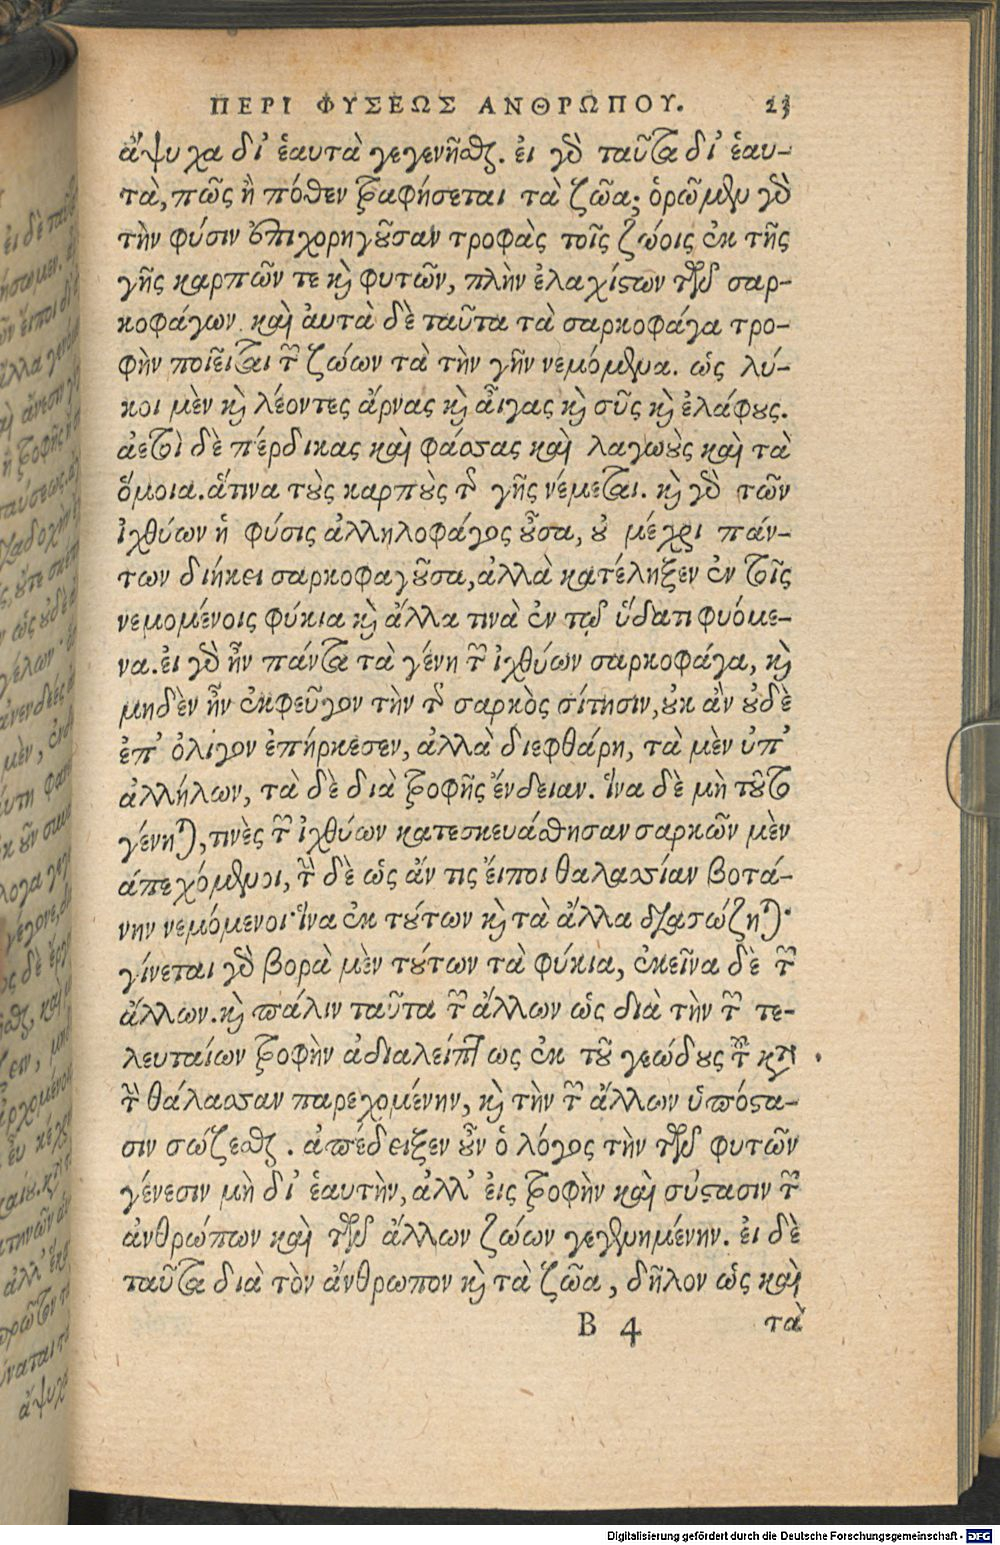 ΠΕΡΙ ΦΥΣΕΩΣ ΑΝΘΡΩΠΟΥ. 23
ἄψυχα δι' ἑαυτὰ γεγενῆσθαι. εἰ γὸ ταῦτα δι' ἑαυ-
τὰ, πῶς ἢ πόθεν τραφήσεται τὰ ζῶα; ὁρῶμεν γὸ
τὴν φύσιν ἐπιχορηγοῦσαν τροφὰς τοῖς ζώοις ἐκ τῆς
γῆς καρπῶν τε καὶ φυτῶν, πλὴν ἐλαχίστων τῶν σαρ-
κοφάγων. καὶ ἀυτὰ δὲ ταῦτα τὰ σαρκοφάγα τρο-
φὴν ποιεῖται τῶν ζώων τὰ τὴν γῆν νεμόμενα. ὡς λύ-
κοι μὲν καὶ λέοντες ἄρνας καὶ αἶγας καὶ σῦς καὶ ἐλάφους.
ἀετοὶ δὲ πέρδικας καὶ φάσσας καὶ λαγωοὺς καὶ τὰ
ὅμοια. ἅτινα τοὺς καρποὺς τῆς γῆς νέμεται. καὶ γὸ τῶν
ἰχθύων ἡ φύσις ἀλληλοφάγος οὖσα, οὐ μέχρι πάν-
των διήκει σαρκοφαγοῦσα, ἀλλὰ κατέληξεν ἐν τοῖς
νεμομένοις φύκια καὶ ἄλλα τινὰ ἐν τῷ ὕδατι φυόμε-
να. εἰ γὸ ἦν πάντα τὰ γένη τῶν ἰχθύων σαρκοφάγα, καὶ
μηδὲν ἦν ἐκφεῦγον τὴν τῆς σαρκὸς σίτησιν, οὐκ ἂν οὐδὲ
ἐπ' ὀλίγον ἐπήρκεσεν, ἀλλὰ διεφθάρη, τὰ μὲν ὑπ'
ἀλλήλων, τὰ δὲ διὰ τροφῆς ἔνδειαν. ἵνα δὲ μὴ τοῦτο
γένηται, τινὲς τῶν ἰχθύων κατεσκευάσθησαν σαρκῶν μὲν
ἀπεχόμενοι, τὴν δὲ ὡς ἄν τις εἴποι θαλασσίαν βοτά-
νην νεμόμενοι· ἵνα ἐκ τούτων καὶ τὰ ἄλλα διασώζηται·
γίνεται γὸ βορὰ μὲν τούτων τὰ φύκια, ἐκεῖνα δὲ τῶν
ἄλλων. καὶ πάλιν ταῦτα τῶν ἄλλων ὡς διὰ τὴν τῶν τε-
λευταίων τροφὴν ἀδιαλείπτως ἐκ τοῦ γεώδους τῶν κατὰ
τὴν θάλασσαν παρεχομένην, καὶ τὴν τῶν ἄλλων ὑπόστα-
σιν σώζεσθαι. ἀπέδειξεν οὖν ὁ λόγος τὴν τῶν φυτῶν
γένεσιν μὴ δι' ἑαυτὴν, ἀλλ' εἰς τροφὴν καὶ σύστασιν τῶν
ἀνθρώπων καὶ τῶν ἄλλων ζώων γεγενημένην. εἰ δὲ
ταῦτα διὰ τὸν ἄνθρωπον καὶ τὰ ζῶα, δῆλον ὡς καὶ
Β 4 τὰ
Digitalisierung gefördert durch die Deutsche Forschungsgemeinschaft - DFG